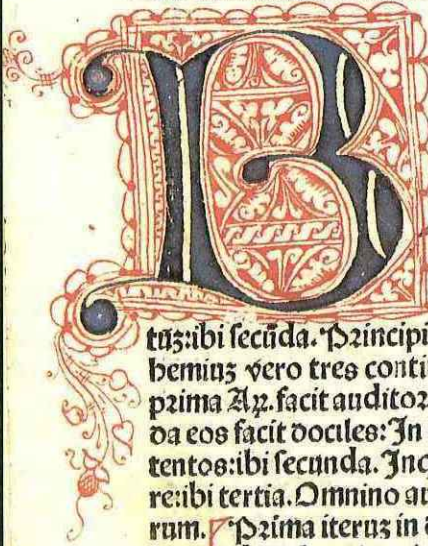 B
tuʒ:ibi secūda. Principi
hemiuʒ vero tres conti
prima Aꝝ. facit auditor
da eos facit dociles: In
tentos:ibi secunda. Inq
re:ibi tertia. Omnino au
rum. Prima iteruʒ in